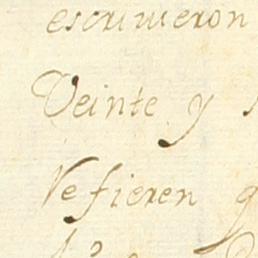 escriuieron
Veinte y
Refieren q